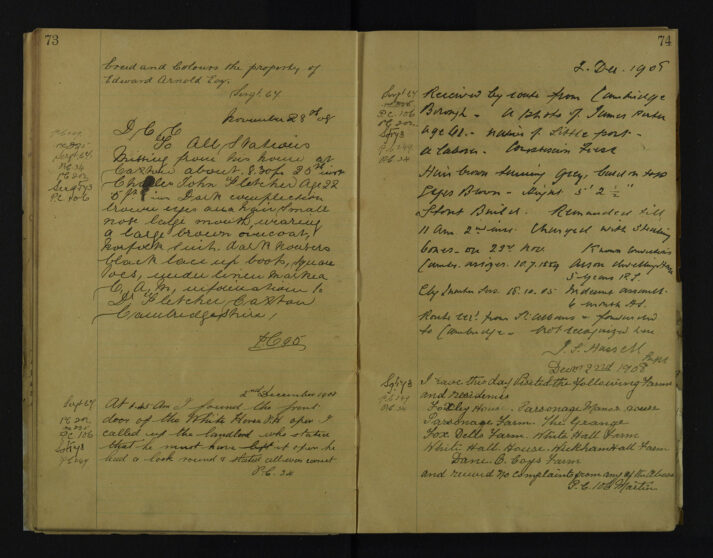 73
bred and Colours the property of
Edward Arnold Esq.
Sergt. 64
November 28th 08
To All Stations
Missing from his home at
Caxton about 8.30 p 25th inst
John Fletcher Age 22
in Dark complexion
brown eyes and hair small
nose large mouth, wearing
a large brown overcoat,
norfolk suit, dark trousers
black lace up boots, square
toes, under linen marked
information to
Dr Fletcher, Caxton
Cambridgeshire,
2nd December 1908
Sergt 67
PC 202
PC 106
PC 34
At 1.45 Am I found the front
door of the White Horse P.H. open I
called up the landlord who stated
that he must have left it open he
had a look round & stated all was correct
P.C. 34
74
2. Dec. 1908
Received by route from Cambridge
Borough - A photo of James
age - native of Little port -
a laborer. Complexion Fresh
Hair brown turning Grey, bald on top
Eyes Brown - Height 5' 2 ½"
Stout Build. Remanded till
11 Am 2nd inst. Charged with Stealing
boxes - on 22nd Nov
assizes. 10.7.1884 Arson dwelling House
5 years P.S.
18.10.05 Indecent assault
6 months
Route from St Albans - forwarded
to Cambridge - Not recognized here
Decr 2nd 1908
PC 34
I have this day Visited the following Farms
and residencies
House. Parsonage Manor House
Parsonage Farm. The Grange
Fox Dells Farm. White Hall Farm
White Hall House. Wickham Hall Farm
Dane O. Coys Farm
and received no complaints from any of the Above
P.C. 106 Martin